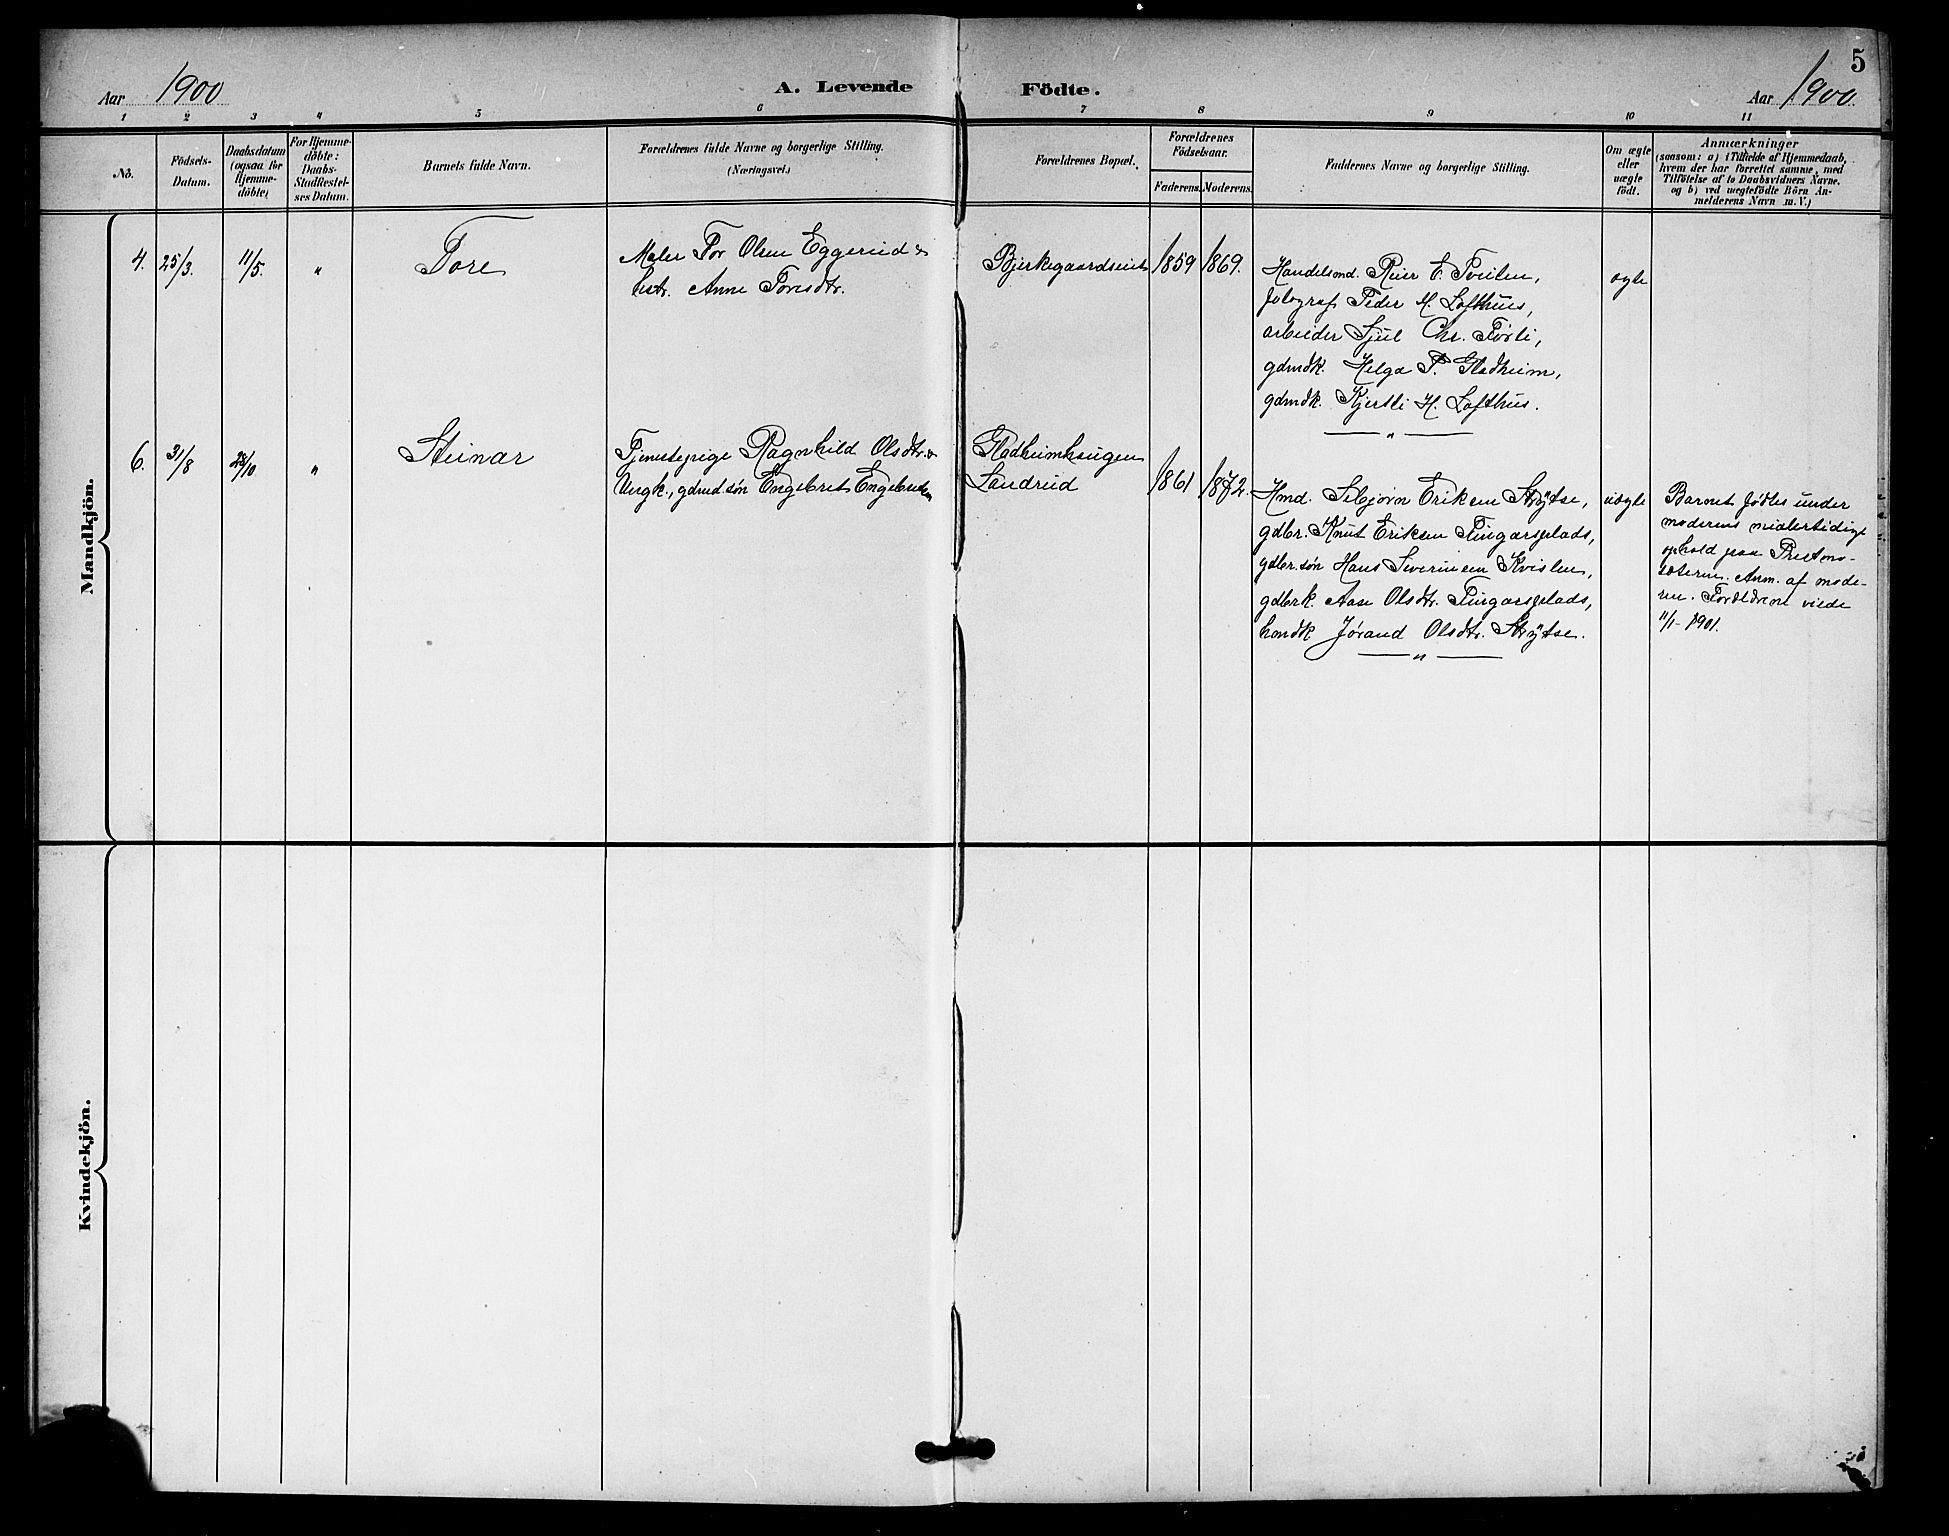 5
Aar 1900
A. Levende Födte.
Aar 1900.
1 2 3 4 5 6 7 8 9 10 11
No.
Födsels-
Datum.
Daabsdatum
(ogsaa for
Hjemme-
döbte)
For Hjemme-
döbte:
Daabs-
Stadfestel-
ses Datum.
Barnets fulde Navn.
Forældrenes fulde Navne og borgerlige Stilling.
(Næringsvei.)
Forældrenes Bopæl.
Forældrenes
Födselsaar.
Faderens. Moderens.
Faddernes Navne og borgerlige Stilling.
Om ægte
eller
uægte
födt.
Anmærkninger
(saasom: a) i Tilfælde af Hjemmedaab,
hvem der har forrettet samme, med
Tilföielse af to Daabsvidners Navne.
og b) ved uægtefödte Börn An-
melderens Navn m. V.)
Mandkjön.
4. 25/3. 11/5. "
Tore
Maler Tor Olsen Eggerud &
hstr. Anne Toresdtr.
Bjerkegaardseiet
1859 1869.
Handelsmd. Reier E. Tveiten,
fotograf Peder H. Lofthus,
arbeider Sjul Chr. Førli,
gdmdk. Helga P. Gladheim,
gdmdk. Kjersti H. Lofthus.
"
ægte
6. 31/8 28/10 "
Steinar
Tjenestepige Ragnhild Olsdtr. &
Ungk., gdmd.søn Engebret Engebretsen
Gladheimhaugen
Sandrud
1861 1872.
Hmd. Sebjørn Eriksen Strytse,
gdbr. Knut Eriksen Tingarsplads,
gdbr. søn Hans Severinsen Kvislen,
gdbrk. Aase Olsdtr. Tingarsplads,
hmdk Jørand Olsdtr. Strytse.
"
uægte
Barnet fødtes under
moderens midlertidige
ophold paa Prestmo-
sæteren. Anm. af mode-
ren. Forældrene viede
11/1- 1901.
Kvindekjön.